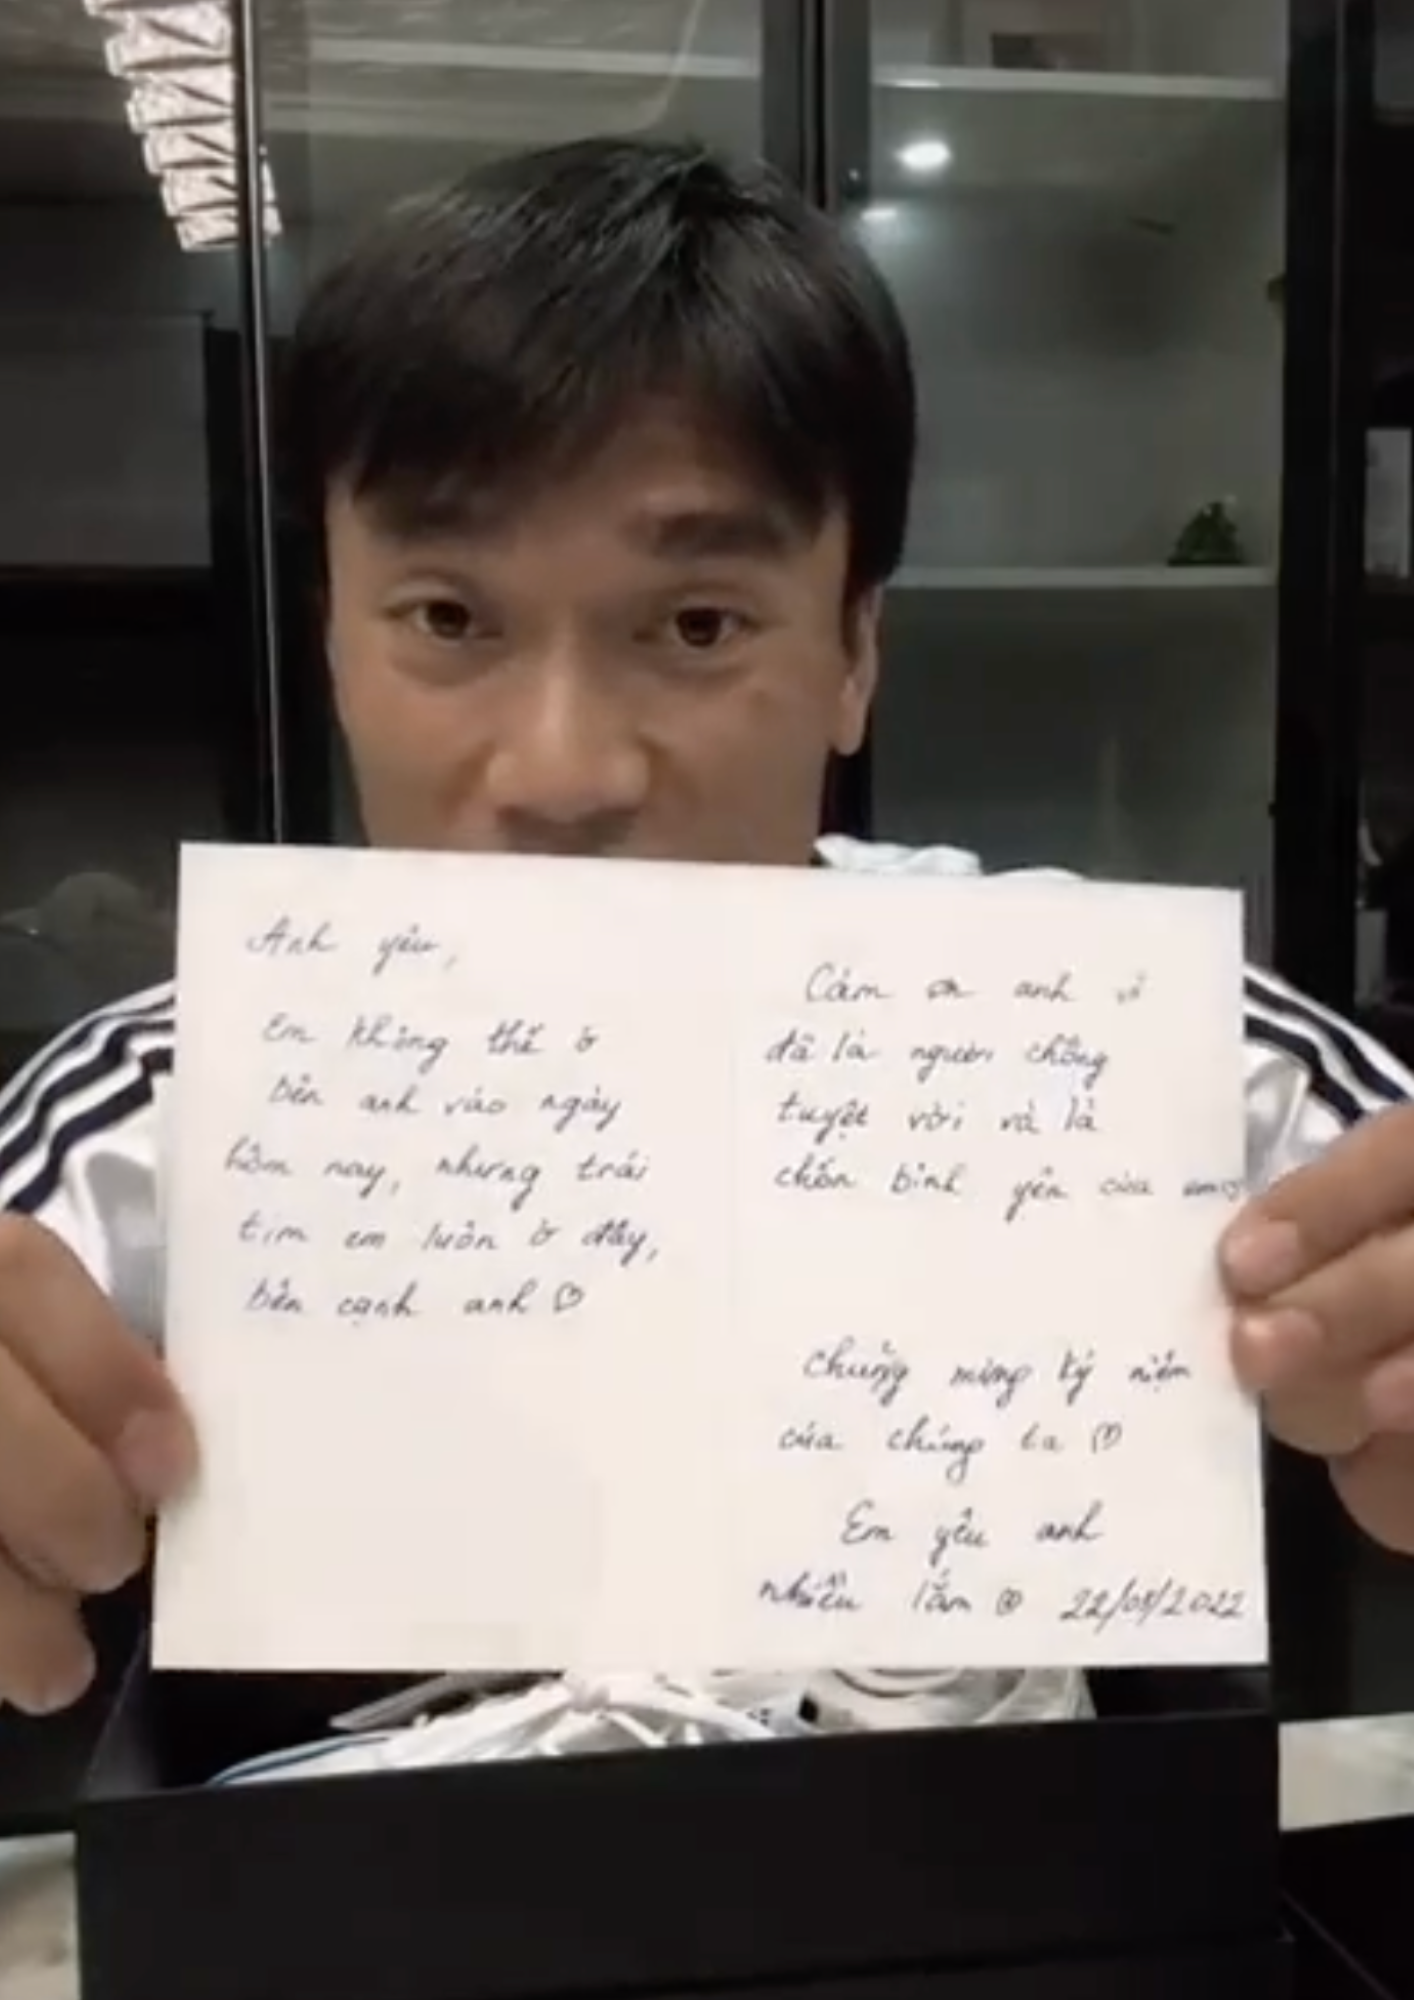 Anh yêu,
Em không thể ở
bên anh vào ngày
hôm nay, nhưng trái
tim em luôn ở đây,
bên cạnh anh ♡
Cám ơn anh vì
đã là người chồng
tuyệt vời và là
chốn bình yên của em
Chúng mừng kỷ niệm
của chúng ta ♡
Em yêu anh
nhiều lắm 22/05/2022